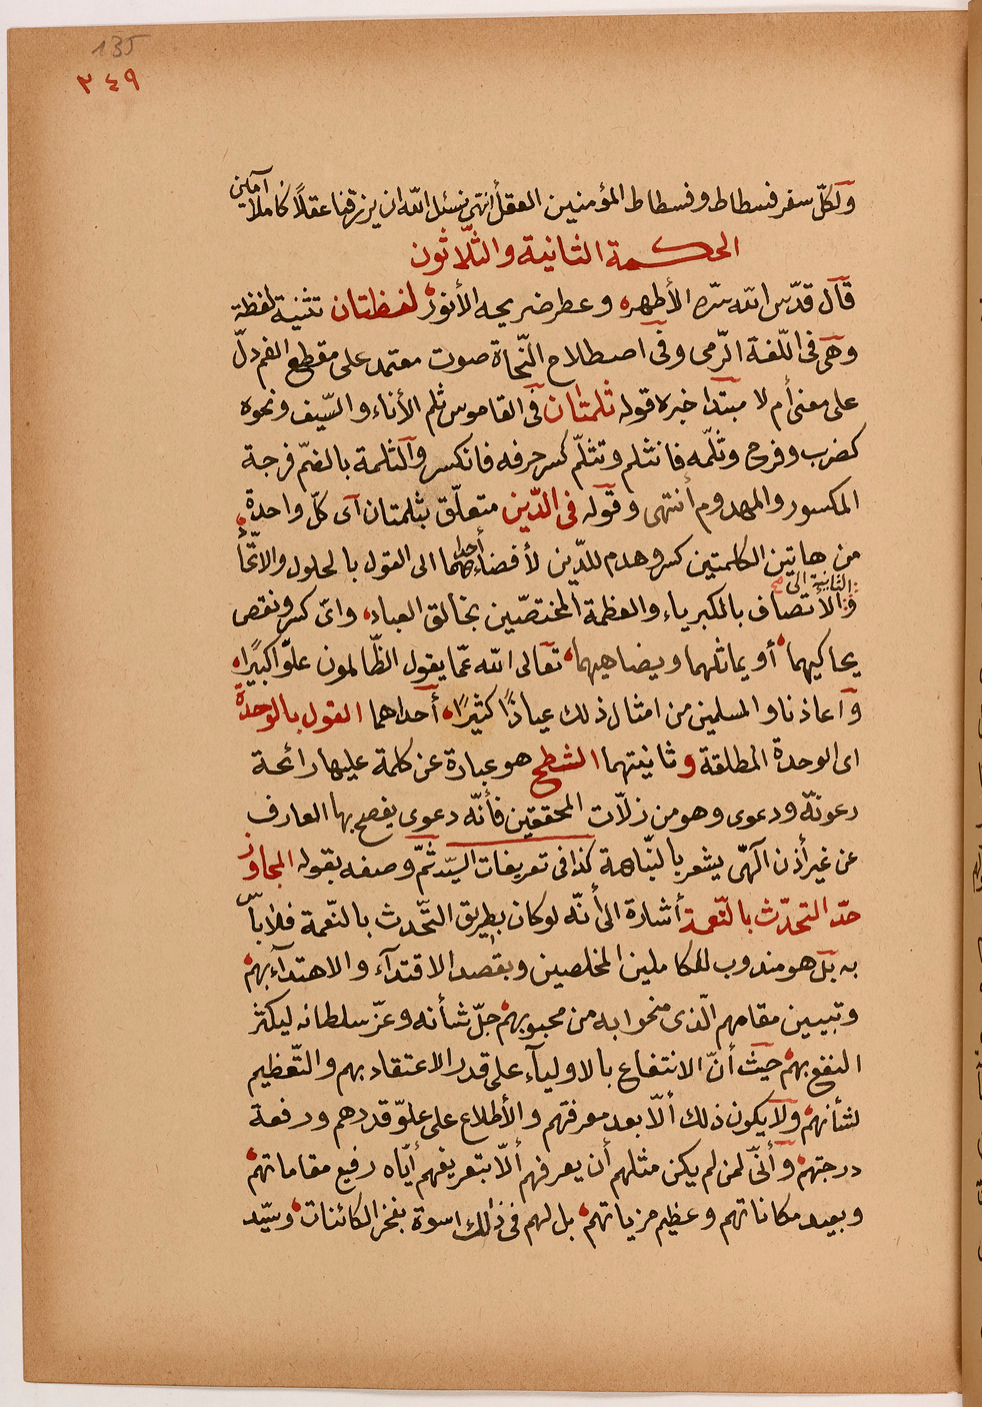 135
٣٤٩
ولكلّ سفر فسطاط وفسطاط المؤمنين العقل أنتهى نسئل الله ان يرزقنا عقلًا كاملًا آمين
الحكمة الثانية والثلاثون
قال قدّس الله سرّه الأطهر وعطر ضريحه الأنور لفظتان تثنية لفظة
وهي في اللّغة الرّمى وفي اصطلاح النّحاة صوت معتمد على مقطع الفم دلّ
على معنى أم لا مبتدا خبره قوله ثلمتان في القاموس ثلم الأناء والسّيف ونحوه
كضرب وفرح وثلّمه فانثلم وتثلّم كسر حرفه فانكسر والثلمة بالضمّ فرجة
المكسور والمهدوم أنتهى وقوله في الدّين متعلّق بثلمتان أى كلّ واحدة
من هاتين الكلمتين كسر وهدم للدّين لأفضاء أحدهما الى القول بالحلول والاتّحاد
والثانية الى صح الأتصاف بالكبرياء والعظمة المختصّين بخالق العباد وائ كسر ونقص
يحاكيهما أو يماثلهما ويضاهيهما تعالى الله عمّا يقول الظّالمون علوّا كبيرًا
وأعاذنا والمسلمين من امثال ذلك عياذًا كثيرًا أحداهما القول بالوحدة
اى الوحدة المطلقة وثانيتهما الشطح هو عبارة عن كلمة عليها رائحة
رعونة ودعوى وهو من زلّات المحققين فأنّه دعوى يفصح بها العارف
عن غير أذن الٓهّى يشعر بالنّباهة كذا في تعريفات السيّد ثمّ وصفه بقوله المجاوز
حدّ التحدّث بالنّعمة أشارة الى أنّه لو كان بطريق التّحدث بالنّعمة فلا بأس
به بل هو مندوب للكاملين المخلصين وبقصد الاقتدآء والاهتدآء بهم
وتبيين مقامهم الّذى منحوا به من محبوبهم جلّ شأنه وعزّ سلطانه ليكثر
النفع بهم حيث أنّ الانتفاع بالاوليآء على قدر الاعتقاد بهم والتّعظيم
لشأنهم ولا يكون ذلك ألّا بعد معرفتهم والأطلاع على علوّ قدرهم ورفعة
درجتهم وأنّى لمن لم يكن مثلهم أن يعرفهم ألّا بتعريفهم أيّاه رفيع مقاماتهم
وبعيد مكاناتهم وعظيم مزياتهم بل لهم في ذلك اسوة بفخر الكائنات وسيّد